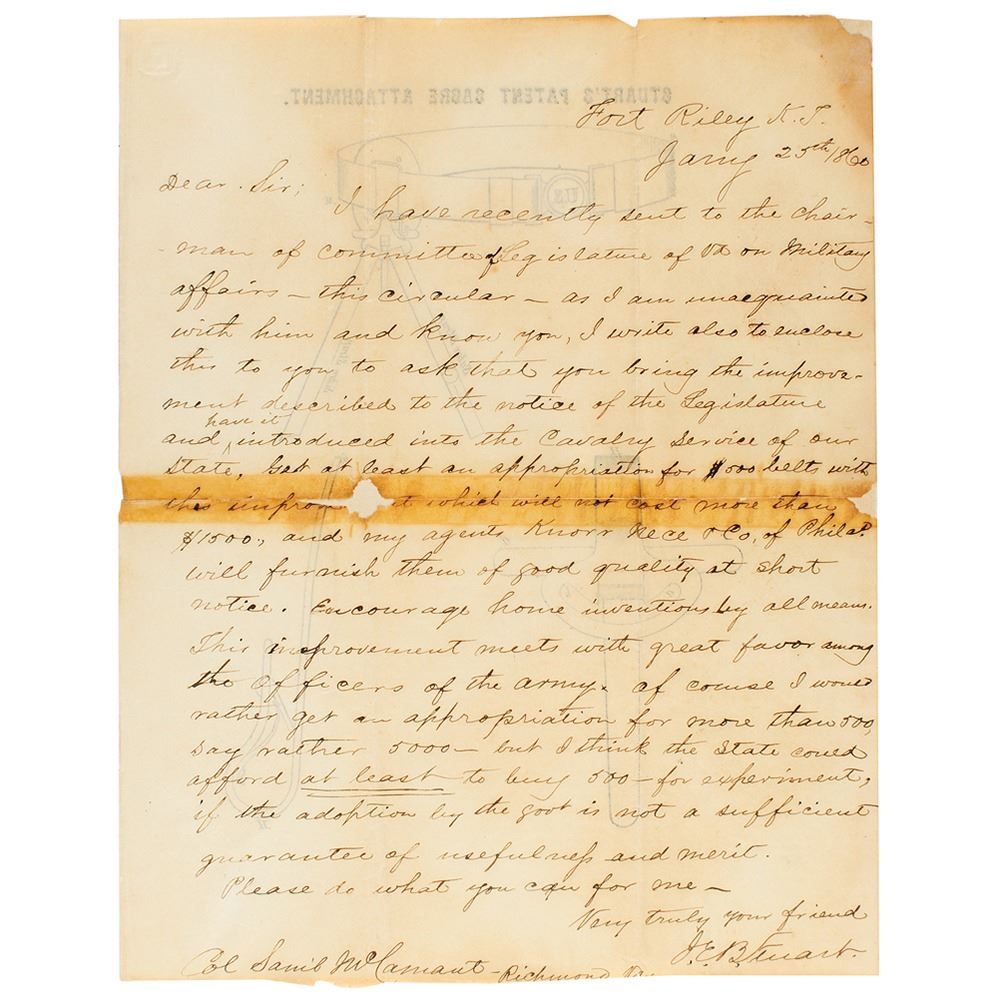 STUART'S PATENT SABRE ATTACHMENT.
Fort Riley K. T.
Jany 25th 1860
Dear Sir;
I have recently sent to the chair-
-man of committee of Legislature of Va on Military
affairs – this circular – as I am unacquainted
with him and know you, I write also to enclose
this to you to ask that you bring the improve-
ment described to the notice of the Legislature
have it
and introduced into the Cavalry Service of our
State, Get at least an appropriation for 500 belts with
this improv t which will not cost more than
$1500., and my agents Knorr Nece & Co, of Philad.
will furnish them of good quality at short
notice. Encourage home inventions by all means.
This improvement meets with great favor among
the officers of the army. of course I would
rather get an appropriation for more than 500,
say rather 5000 – but I think the State could
afford at least to buy 500 – for experiment,
if the adoption by the govt is not a sufficient
guarantee of usefulness and merit.
Please do what you can for me –
Very truly your friend
J.E.B. Stuart.
Col Saml McCamant – Richmond Va.